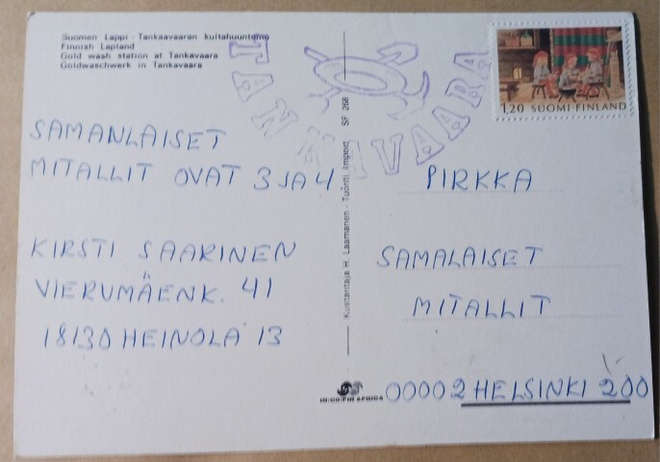 Suomen Lappi - Tankaavaaran kultahuuntomo
Finnish Lapland
Gold wash station at Tankavaara
Goldwaschwerk in Tankavaara
TANKAVAARA
1,20 SUOMI-FINLAND
SAMANLAISET
MITALLIT OVAT 3 JA 4
KIRSTI SAARINEN
VIERUMÄENK. 41
18130 HEINOLA 13
Kustantaja H. Laamanen - Tuonti, Import SF 268
PIRKKA
SAMALAISET
MITALLIT
00002 HELSINKI 200